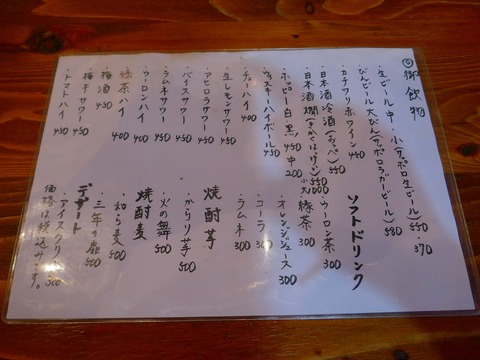 ◎御飲物
・生ビール 中・小(サッポロ生ビール)550・370
・びんビール 大びん(サッポロラガービール)580
・カチワリ赤ワイン 450
・日本酒冷酒(あっぺ)550
・日本酒燗(きかてはけっつ)550
・ホッピー 白・黒 450 中200
・ウィスキーハイボール 450
・チューハイ 400
・生レモンサワー 450
・アセロラサワー 450
・バイスサワー 450
・ラムネサワー 450
・ウーロンハイ 400
・緑茶ハイ 400
・梅酒 450
・梅干サワー 450
・トマトハイ 450
ソフトドリンク
・ウーロン茶 300
・緑茶 300
・オレンジジュース 300
・コーラ 300
・ラムネ 300
焼酎芋
・からり芋 500
・火の舞 500
焼酎麦
・知ら麦 500
・三年の扉 500
デザート
・アイスクリーム 300
価格は税込みです。